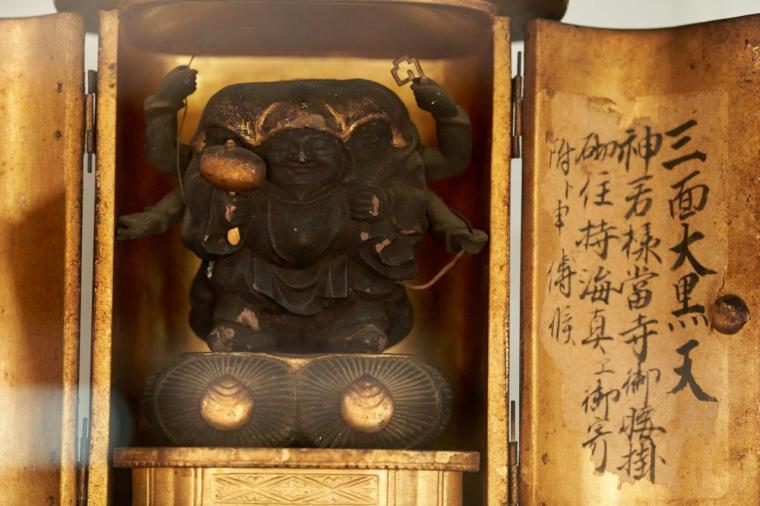 三面大黒天
神君様當寺御腰掛
砌住持海真ニ御寄
附ト申傳候